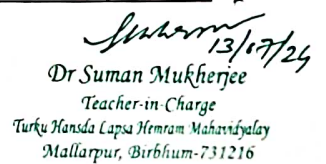 13/07/24
Dr Suman Mukherjee
Teacher-in-Charge
Turku Hansda Lapsa Hemram Mahavidyalay
Mallarpur, Birbhum-731216